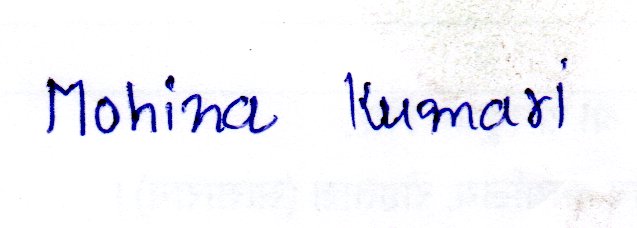 Mohina Kumari